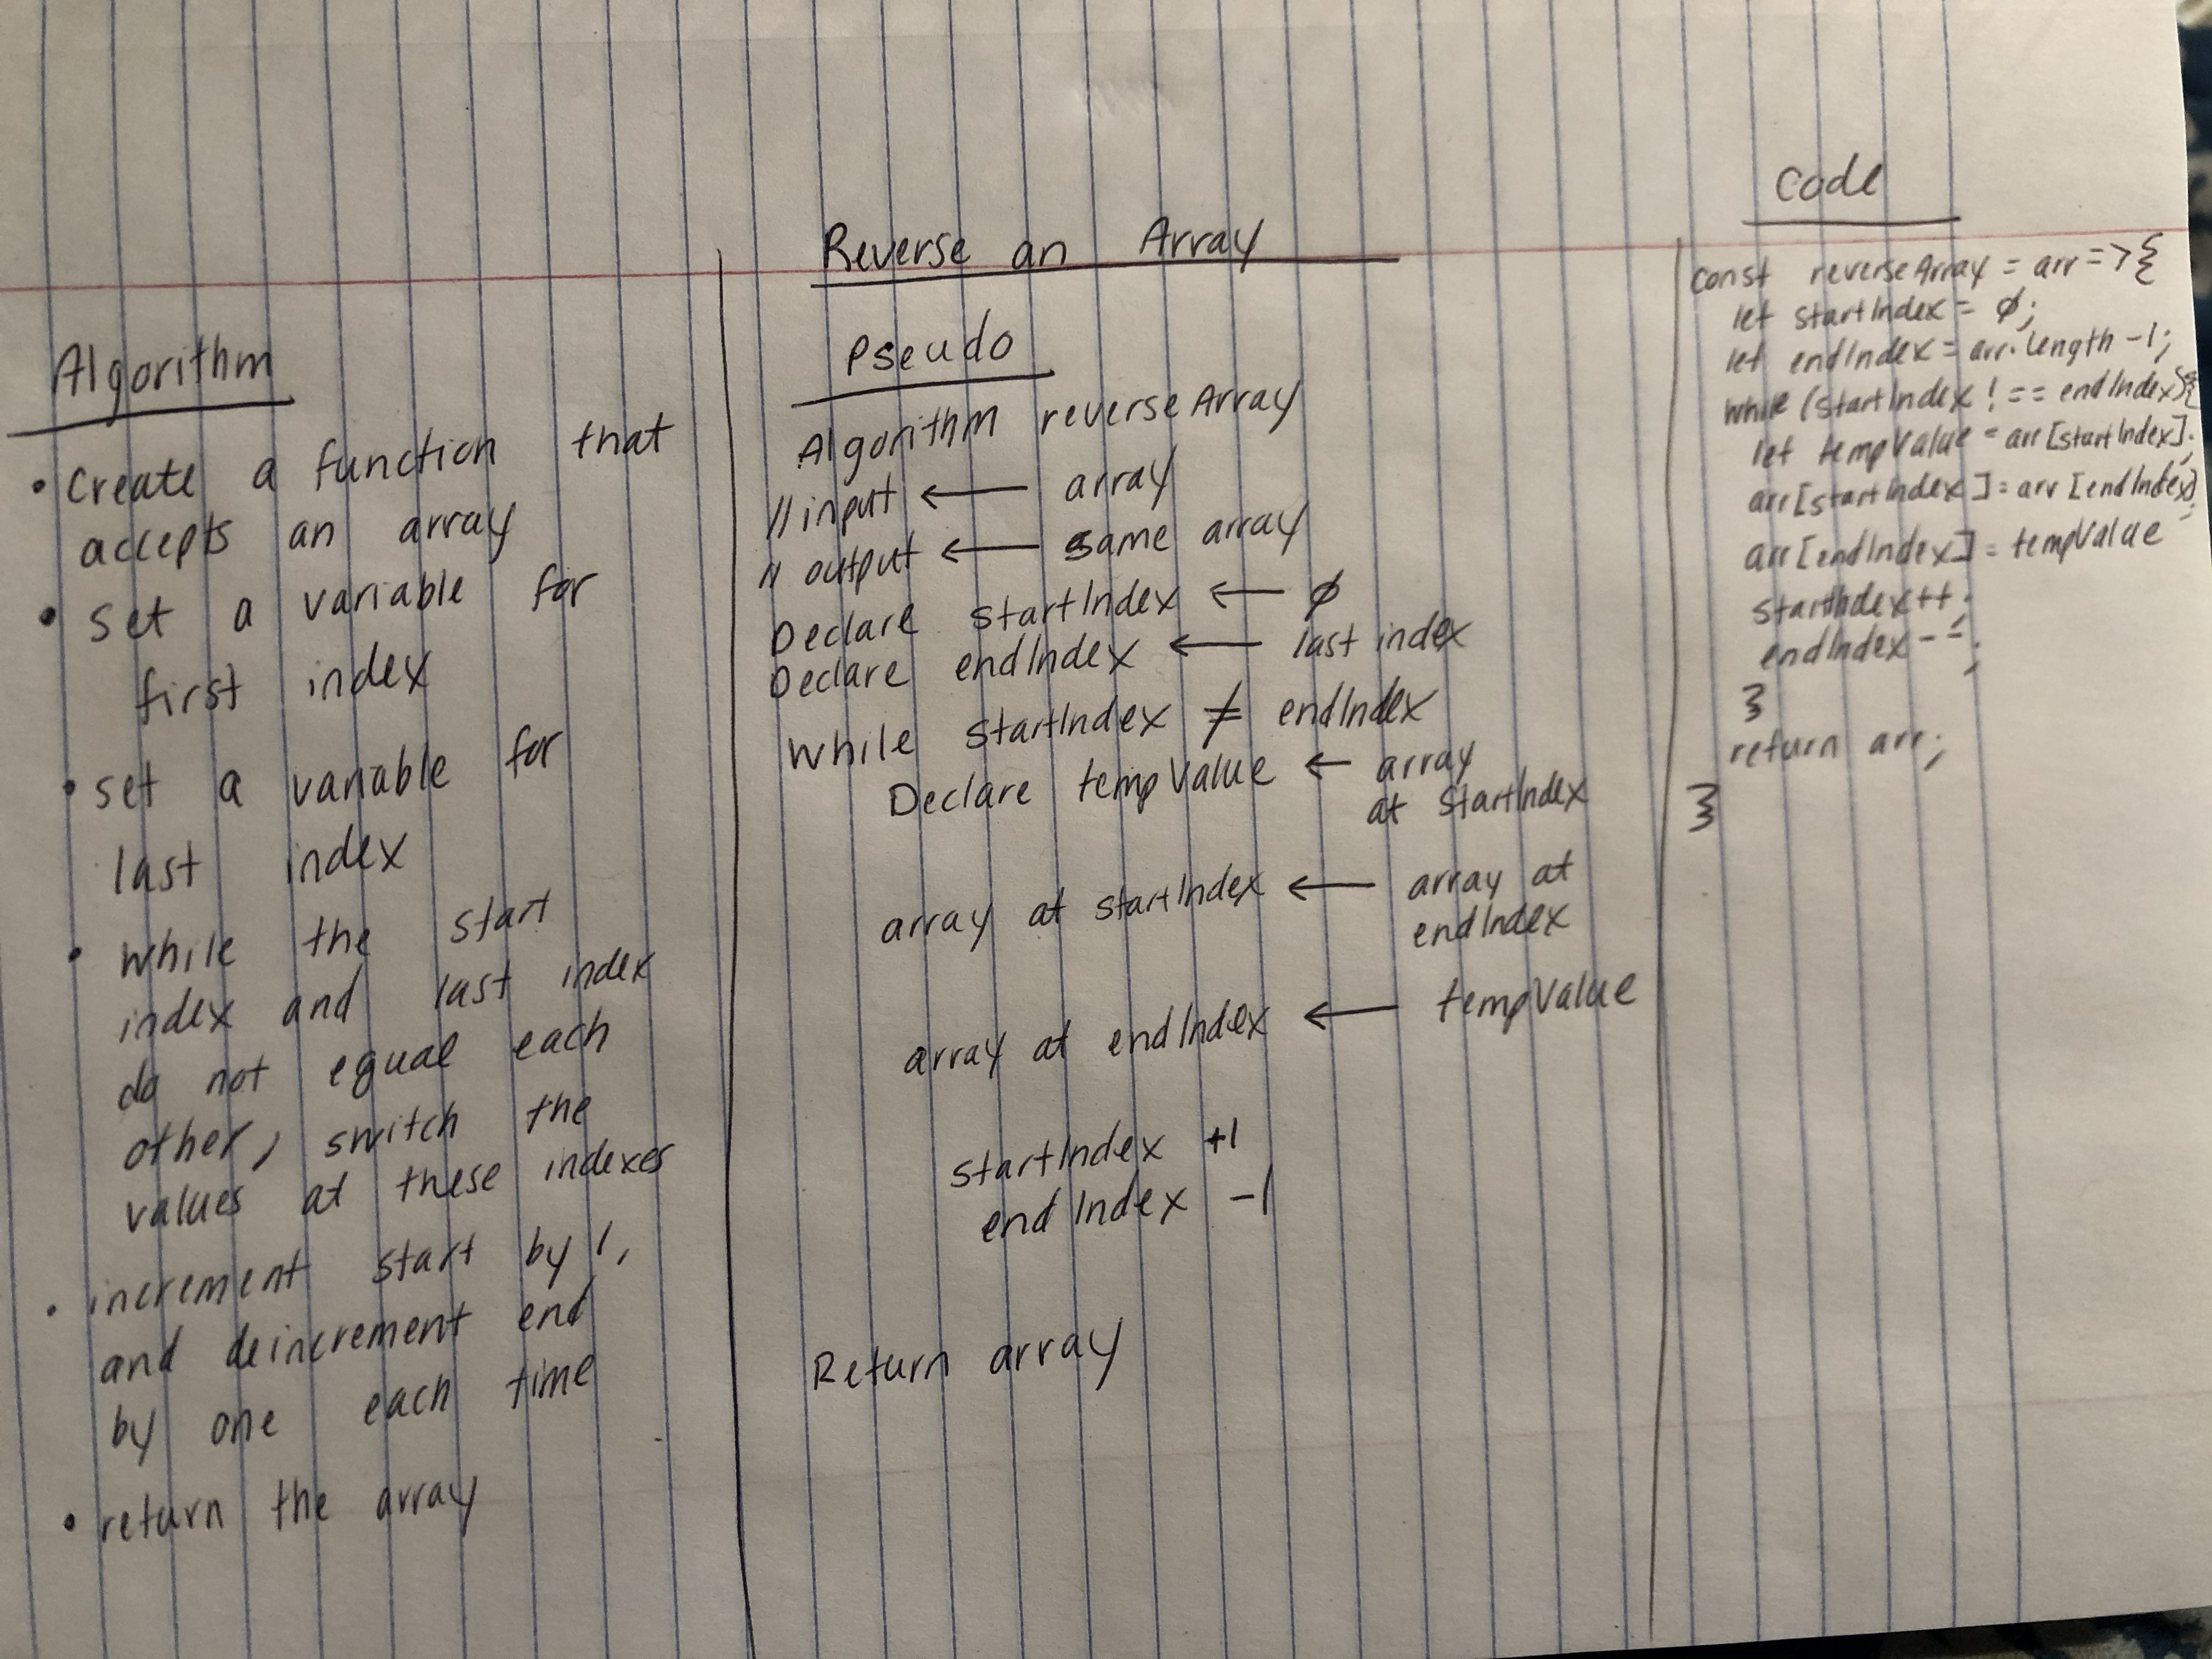 Reverse an Array
Algorithm
• Create a function that
accepts an array
• set a variable for
first index
• set a variable for
last index
• while the start
index and last index
do not equal each
other, switch the
values at these indexes
• increment start by 1,
and deincrement end
by one each time
• return the array
Pseudo
Algorithm reverseArray
// input ← array
// output ← same array
Declare startIndex ← ∅
Declare endIndex ← last index
While startIndex ≠ endIndex
Declare tempValue ← array
at startIndex
array at startIndex ← array at
endIndex
array at endIndex ← tempValue
startIndex +1
endIndex -1
Return array
Code
const reverseArray = arr => {
let startIndex = ∅;
let endIndex = arr.length -1;
while (startIndex !== endIndex){
let tempValue = arr[startIndex];
arr[startIndex] = arr[endIndex];
arr[endIndex] = tempValue
startIndex++;
endIndex--;
}
return arr;
}